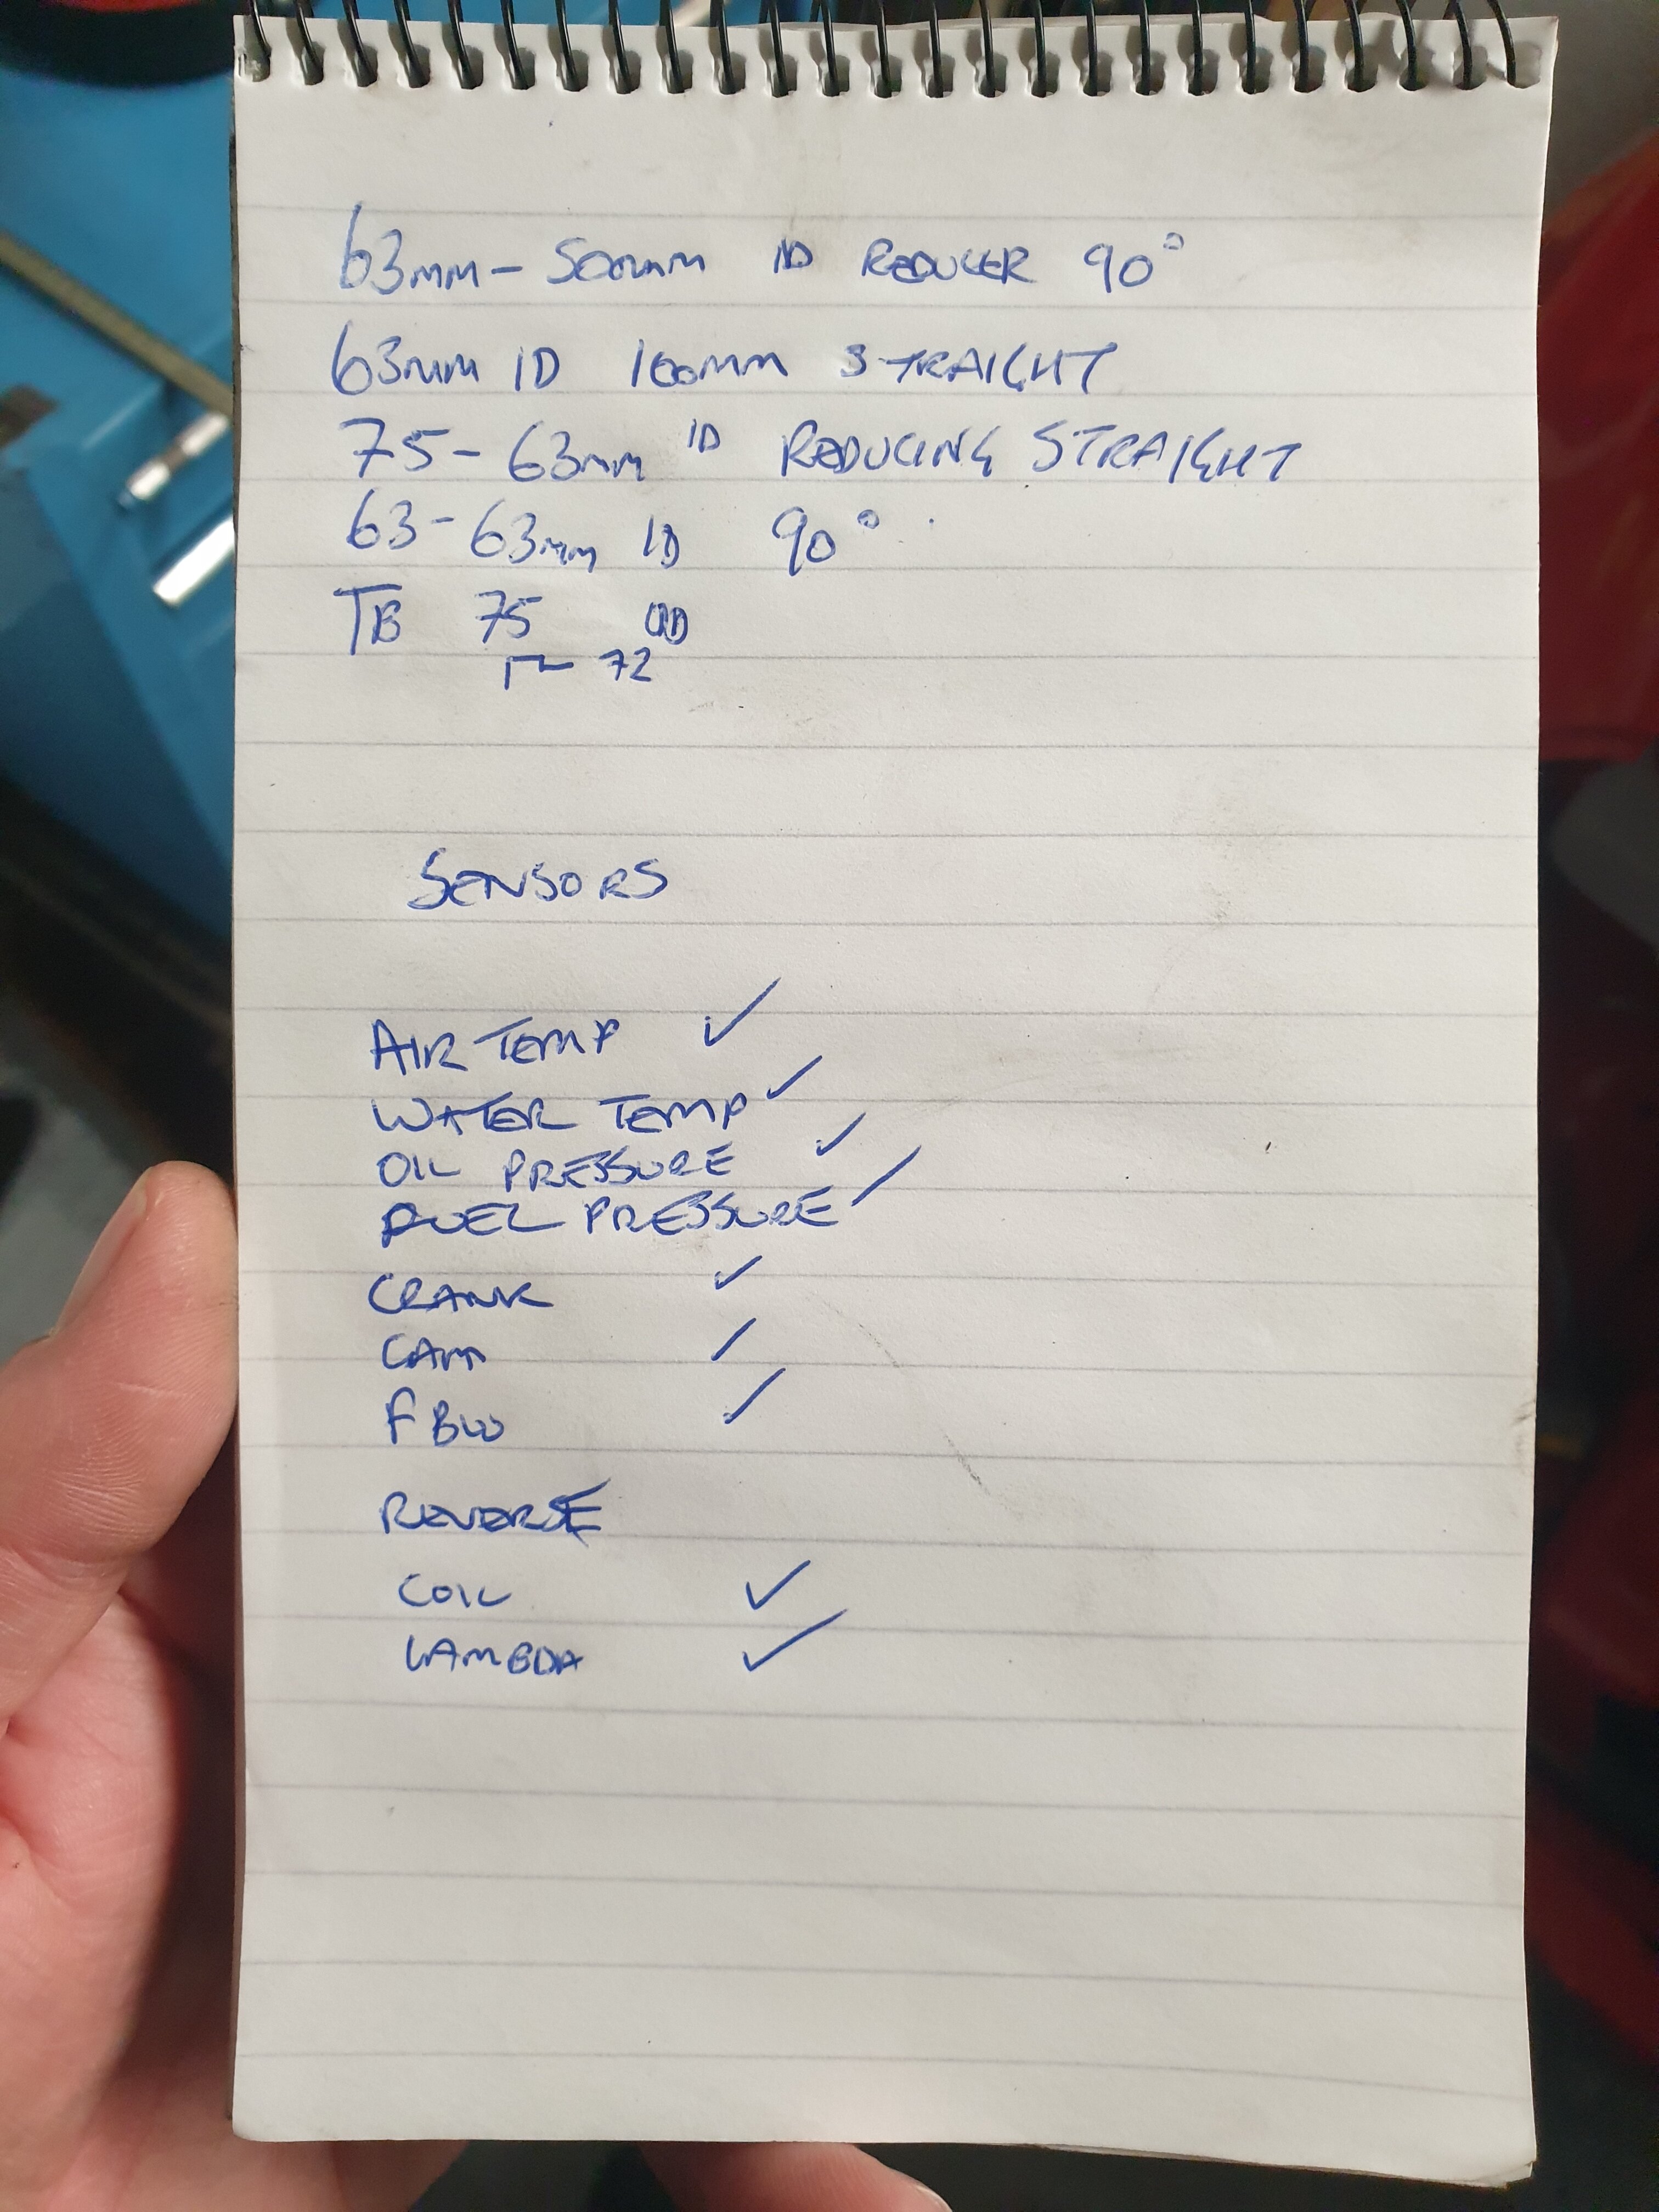 63mm - 50mm ID REDUCER 90°
63mm ID 100mm STRAIGHT
75 - 63mm ID REDUCING STRAIGHT
63 - 63mm ID 90°
TB 75 OD
72
SENSORS
AIR TEMP ✓
WATER TEMP ✓
OIL PRESSURE ✓
FUEL PRESSURE ✓
CRANK ✓
CAM ✓
FBW ✓
REVERSE
COIL ✓
LAMBDA ✓